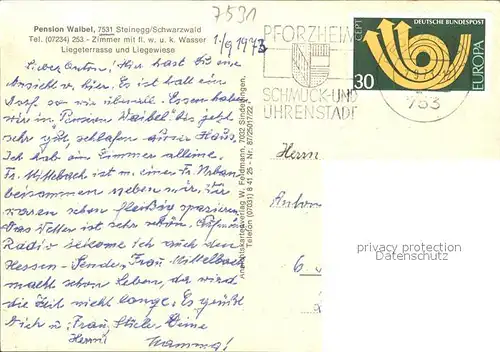 7531
Pension Waibel, 7531 Steinegg/Schwarzwald
Tel. (07234) 253 - Zimmer mit fl. w. u. k. Wasser
Liegeterrasse und Liegewiese
1/9 1973
PFORZHEIM
SCHMUCK-UND
UHRENSTADT
753
CEPT
DEUTSCHE BUNDESPOST
30
EUROPA
Lieber Anton! Hier hast Du eine
Ansicht v. hier. Es ist ein
Dorf. so wie überall. Essen haben
wir in Pension Waibel bis jetzt
sehr gut, schlafen außer Haus.
Ich hab ein Zimmer alleine.
Fr. Mittelbach ist m. einer Fr. Urban
beisammen neben mir. Wir
waren schon fleißig spazieren.
Das Wetter ist sehr schön.
Radio bekomme ich auch den
Hessen-Sender, Frau Mittelbach
macht schon Leben, da wird
die Zeit nicht lange. Es grüßt
Dich u. Frau Deine
Mamma!
Ansichtskartenverlag W. Feldmann, 7032 Sindelfingen,
Telefon (07031) 8 41 25 - Nr. 87/25017/22
Herrn
Anton
privacy protection
Datenschutz